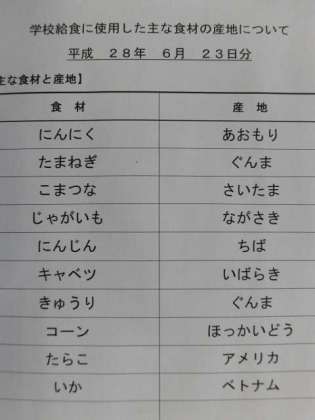 学校給食に使用した主な食材の産地について
平成 28年 6月 23日分
主な食材と産地】
食材 産地
にんにく あおもり
たまねぎ ぐんま
こまつな さいたま
じゃがいも ながさき
にんじん ちば
キャベツ いばらき
きゅうり ぐんま
コーン ほっかいどう
たらこ アメリカ
いか ベトナム